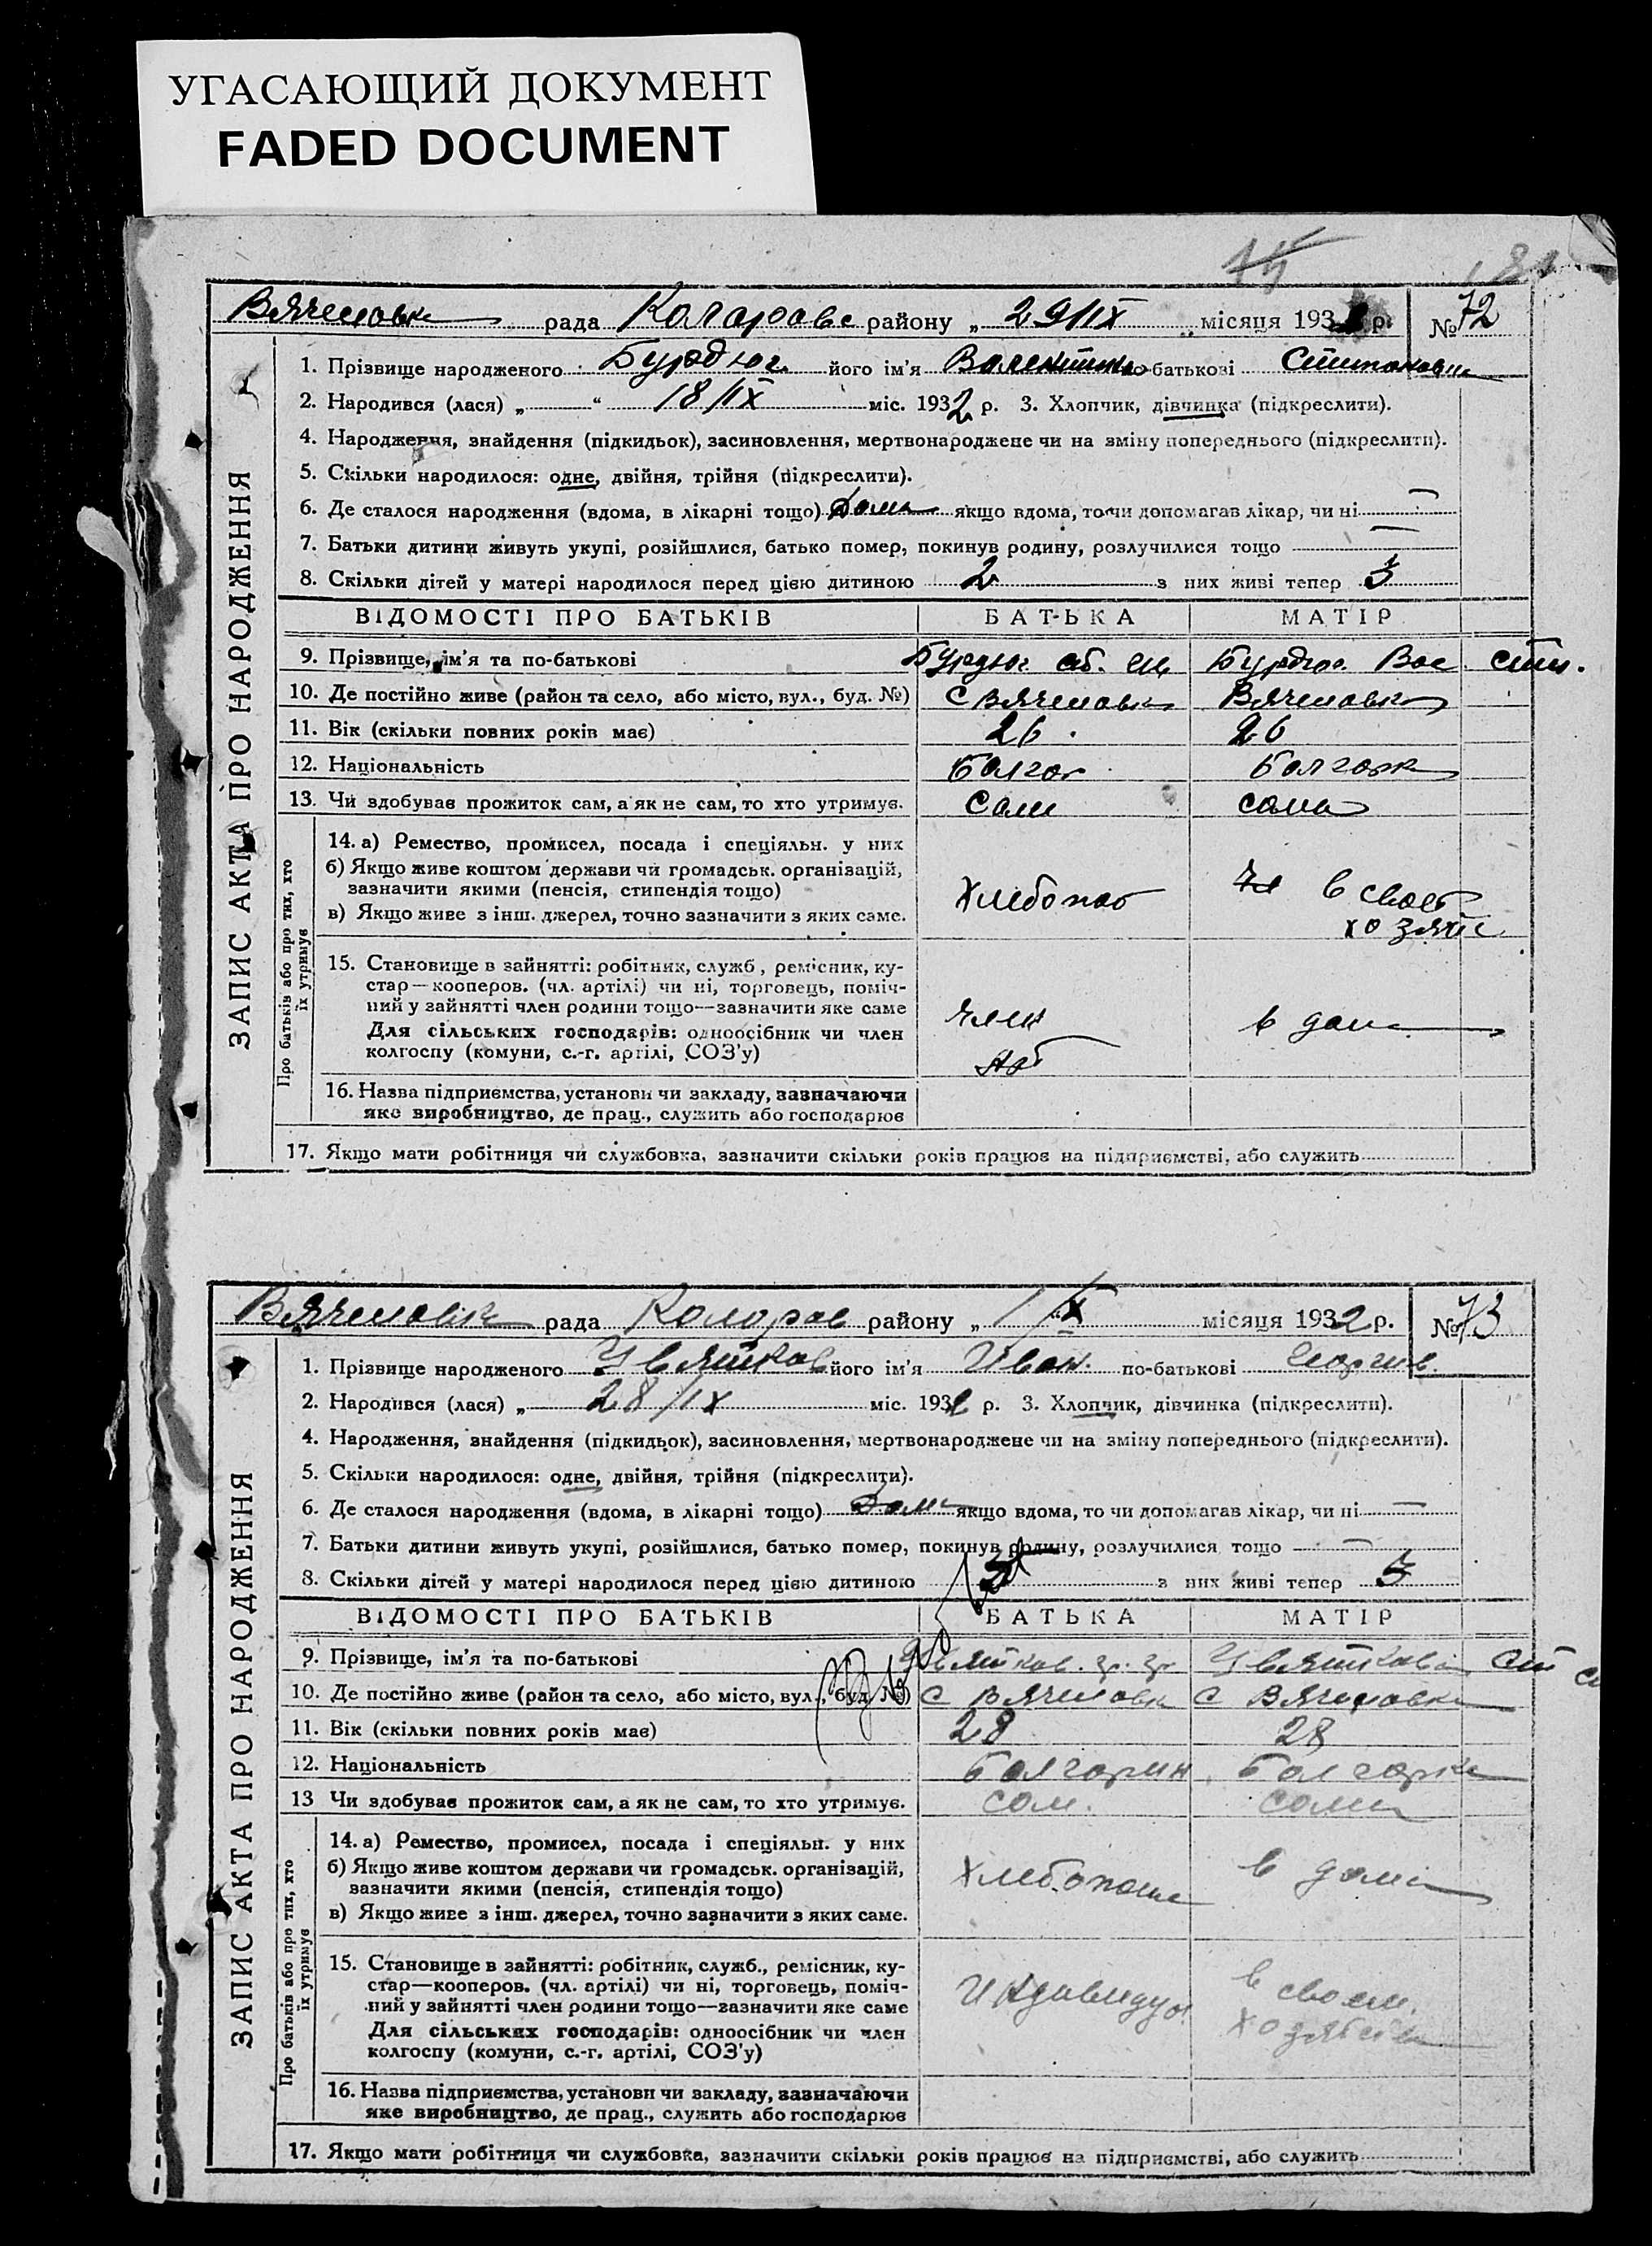 УГАСАЮЩИЙ ДОКУМЕНТ
FADED DOCUMENT
Вячеловка рада Коларовс району „ 29/IX місяця 1932 р. № 72
1. Прізвище народженого Бурдюг його ім'я Валентина по-батькові Степановна
2. Народився (лася) „ “ 18/IX міс. 1932 р. 3. Хлопчик, дівчинка (підкреслити).
4. Народження, знайдення (підкидьок), засиновлення, мертвонароджене чи на зміну попереднього (підкреслити).
5. Скільки народилося: одне, двійня, трійня (підкреслити).
6. Де сталося народження (вдома, в лікарні тощо) Дома якщо вдома, то чи допомагав лікар, чи ні —
7. Батьки дитини живуть укупі, розійшлися, батько помер, покинув родину, розлучилися тощо —
8. Скільки дітей у матері народилося перед цією дитиною 2 з них живі тепер 3
ВІДОМОСТІ ПРО БАТЬКІВ БАТЬКА МАТІР
9. Прізвище, ім'я та по-батькові Бурдюг Бурдюг Вас
10. Де постійно живе (район та село, або місто, вул., буд. №) С Вячеловка Вячеловка
11. Вік (скільки повних років має) 26 26
12. Національність Болгар Болгарк
13. Чи здобував прожиток сам, а як не сам, то хто утримує. Сам сама
14. а) Ремество, промисел, посада і спеціяльн. у них
б) Якщо живе коштом держави чи громадськ. організацій,
зазначити якими (пенсія, стипендія тощо) Хлебопаш в своем
в) Якщо живе з інш. джерел, точно зазначити з яких саме. хозяйс
15. Становище в зайнятті: робітник, служб., ремісник, ку-
стар—кооперов. (чл. артілі) чи ні, торговець, поміч-
ний у зайнятті член родини тощо—зазначити яке саме Член в дома
Для сільських господарів: одноосібник чи член
колгоспу (комуни, с.-г. артілі, СОЗ'у)
16. Назва підприємства, установи чи закладу, зазначаючи
яке виробництво, де прац., служить або господарює
17. Якщо мати робітниця чи службовка, зазначити скільки років працює на підприємстві, або служить
ЗАПИС АКТА ПРО НАРОДЖЕННЯ
Про батьків або про тих, хто
їх утримує
Вячеловка рада Коларов району „ 1/X місяця 1932 р. № 73
1. Прізвище народженого Цвятков його ім'я Иван по-батькові Георгиев
2. Народився (лася) „ 28/IX міс. 1932 р. 3. Хлопчик, дівчинка (підкреслити).
4. Народження, знайдення (підкидьок), засиновлення, мертвонароджене чи на зміну попереднього (підкреслити).
5. Скільки народилося: одне, двійня, трійня (підкреслити).
6. Де сталося народження (вдома, в лікарні тощо) Дома якщо вдома, то чи допомагав лікар, чи ні —
7. Батьки дитини живуть укупі, розійшлися, батько помер, покинув родину, розлучилися тощо —
8. Скільки дітей у матері народилося перед цією дитиною з них живі тепер 3
ВІДОМОСТІ ПРО БАТЬКІВ БАТЬКА МАТІР
9. Прізвище, ім'я та по-батькові Цвятков Цвяткова
10. Де постійно живе (район та село, або місто, вул., буд. №) С Вячеловка С Вячеловка
11. Вік (скільки повних років має) 28 28
12. Національність Болгарин Болгарка
13 Чи здобував прожиток сам, а як не сам, то хто утримує. сам. сама
14. а) Ремество, промисел, посада і спеціяльн. у них
б) Якщо живе коштом держави чи громадськ. організацій,
зазначити якими (пенсія, стипендія тощо) Хлебопаше в дома
в) Якщо живе з інш. джерел, точно зазначити з яких саме.
15. Становище в зайнятті: робітник, служб., ремісник, ку-
стар—кооперов. (чл. артілі) чи ні, торговець, поміч-
ний у зайнятті член родини тощо—зазначити яке саме Индивидуал в своем
Для сільських господарів: одноосібник чи член хозяйства
колгоспу (комуни, с.-г. артілі, СОЗ'у)
16. Назва підприємства, установи чи закладу, зазначаючи
яке виробництво, де прац., служить або господарює
17. Якщо мати робітниця чи службовка, зазначити скільки років працює на підприємстві, або служить
ЗАПИС АКТА ПРО НАРОДЖЕННЯ
Про батьків або про тих, хто
їх утримує